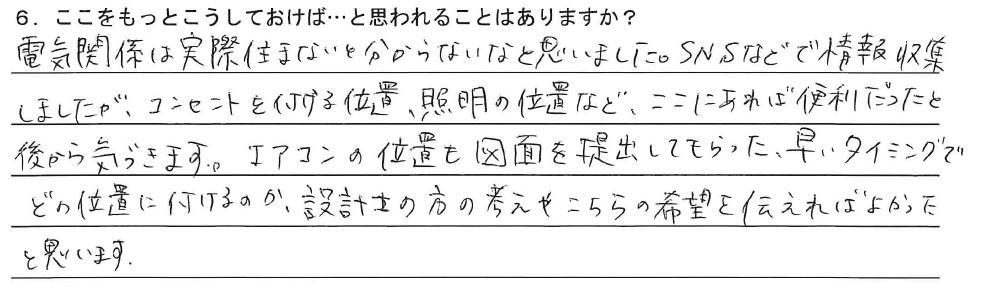 6. ここをもっとこうしておけば…と思われることはありますか？
電気関係は実際住まないと分からないなと思いました。SNSなどで情報収集
しましたが、コンセントを付ける位置、照明の位置など、ここにあれば便利だったと
後から気づきます。エアコンの位置も図面を提出してもらった、早いタイミングで
どの位置に付けるのか、設計士の方の考えやこちらの希望を伝えればよかった
と思います。